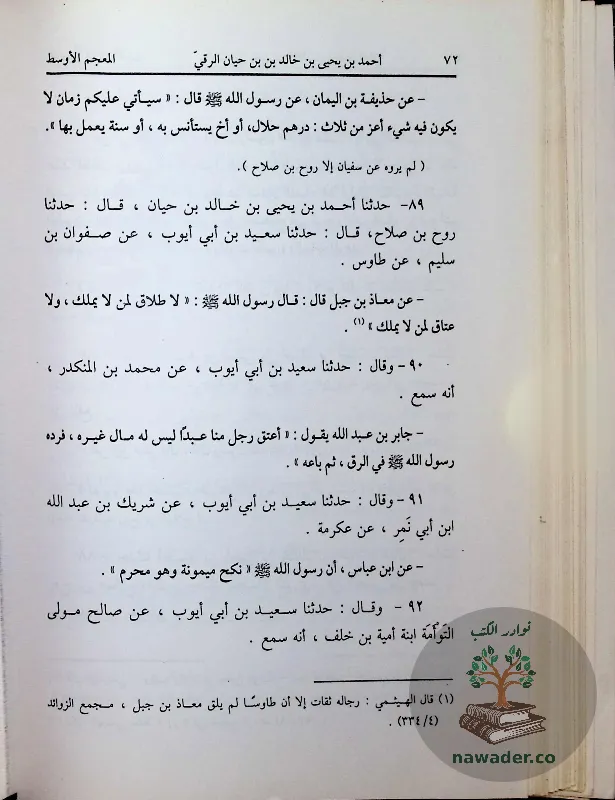 ٧٢ أحمد بن يحيى بن خالد بن بن حيان الرقيّ المعجم الأوسط
– عن حذيفة بن اليمان ، عن رسول الله ﷺ قال : « سيأتي عليكم زمان لا
يكون فيه شيء أعز من ثلاث : درهم حلال، أو أخ يستأنس به ، أو سنة يعمل بها ».
( لم يروه عن سفيان إلا روح بن صلاح ).
٨٩- حدثنا أحمد بن يحيى بن خالد بن حيان ، قال : حدثنا
روح بن صلاح، قال : حدثنا سعيد بن أبي أيوب ، عن صفوان بن
سليم ، عن طاوس .
– عن معاذ بن جبل قال : قال رسول الله ﷺ : « لا طلاق لمن لا يملك ، ولا
عتاق لمن لا يملك » (١) .
٩٠- وقال : حدثنا سعيد بن أبي أيوب ، عن محمد بن المنكدر ،
أنه سمع .
– جابر بن عبد الله يقول : « أعتق رجل منا عبدًا ليس له مال غيره ، فرده
رسول الله ﷺ في الرق ، ثم باعه » .
٩١- وقال : حدثنا سعيد بن أبي أيوب ، عن شريك بن عبد الله
ابن أبي نَمِر ، عن عكرمة .
– عن ابن عباس ، أن رسول الله ﷺ « نكح ميمونة وهو محرم » .
٩٢ - وقال : حدثنا سعيد بن أبي أيوب ، عن صالح مولى
التَوأَمَة ابنة أمية بن خلف ، أنه سمع .
(١) قال الهيثمي : رجاله ثقات إلا أن طاوسًا لم يلق معاذ بن جبل ، مجمع الزوائد
(٣٣٤/٤) .
نوادر الكتب
nawader.co